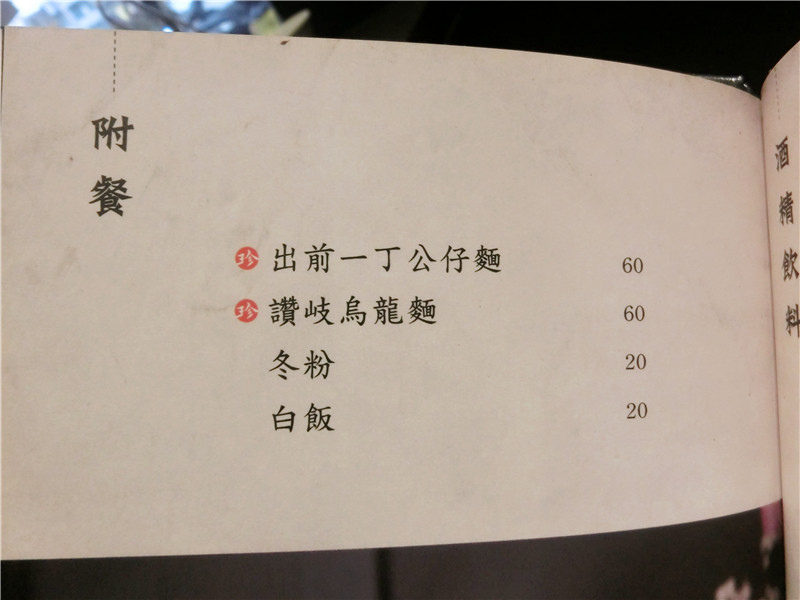 附餐
珍 出前一丁公仔麵 60
珍 讚岐烏龍麵 60
冬粉 20
白飯 20
酒精飲料